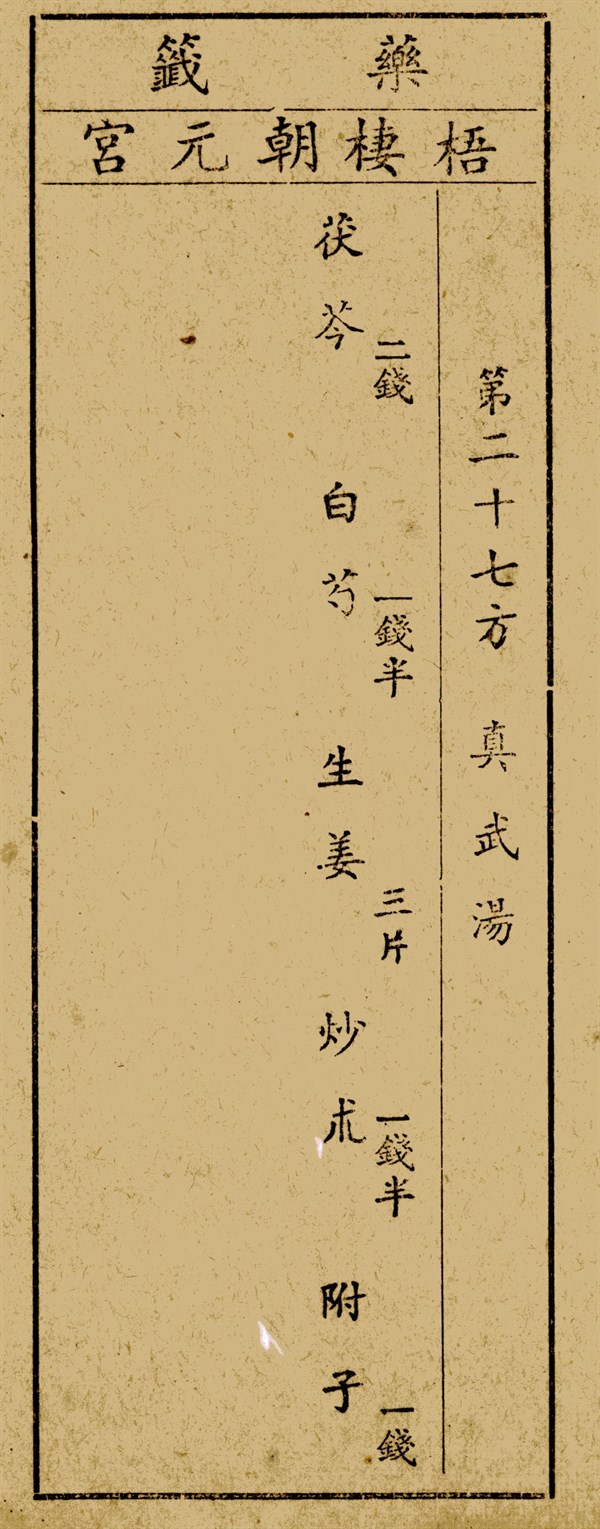 藥籤
梧棲朝元宮
第二十七方 真武湯
茯苓 二錢 白芍 一錢半 生姜 三片 炒朮 一錢半 附子 一錢